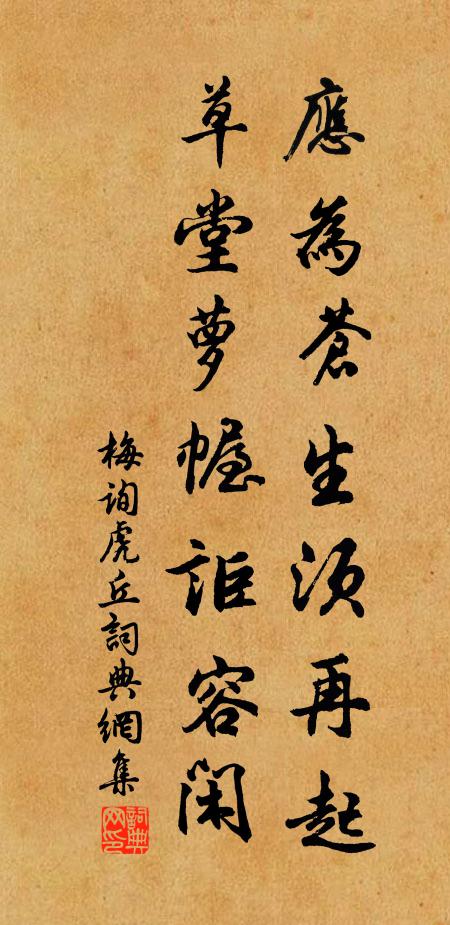 應為蒼生須再起
草堂夢幄詎容閑
梅詢虎丘詞典網集
詞典網印